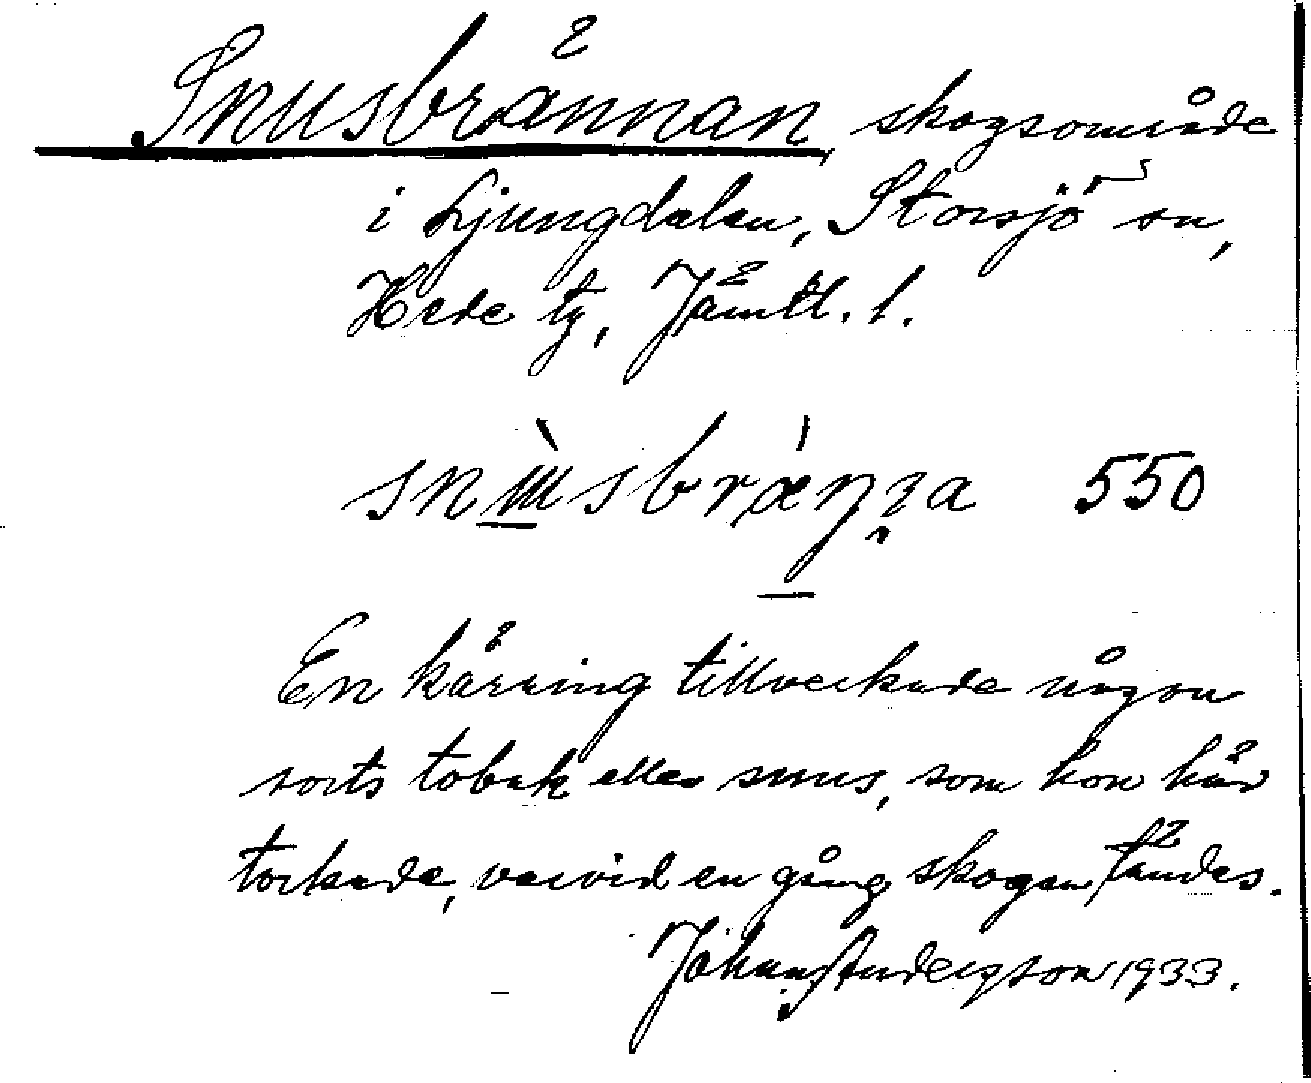 Snusbrännan, skogsområde
i Ljungdalen, Storsjö sn,
Hede tg, Jämtl. l.
550
En käring tillverkade någon
sorts tobak eller snus, som hon här
torkade, varvid en gång skogen tändes.
Johan Andersson 1933.